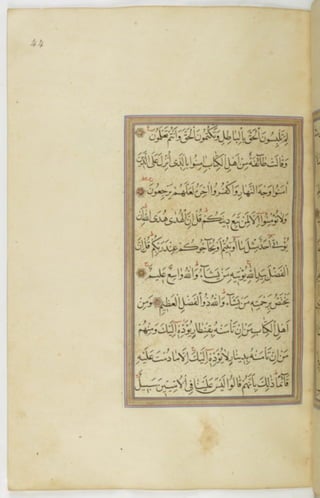 ٤٤
لم تلبسون الحق بالباطل وتكتمون الحق وأنتم تعلمون
وقالت طائفة من أهل الكتاب آمنوا بالذي أنزل على الذين
آمنوا وجه النهار واكفروا آخره لعلهم يرجعون
ولا تؤمنوا إلا لمن تبع دينكم قل إن الهدى هدى الله أن
يؤتى أحد مثل ما أوتيتم أو يحاجوكم عند ربكم قل إن
الفضل بيد الله يؤتيه من يشاء والله واسع عليم
يختص برحمته من يشاء والله ذو الفضل العظيم ومن
أهل الكتاب من إن تأمنه بقنطار يؤده إليك ومنهم
من إن تأمنه بدينار لا يؤده إليك إلا ما دمت عليه
قائما ذلك بأنهم قالوا ليس علينا في الأميين سبيل